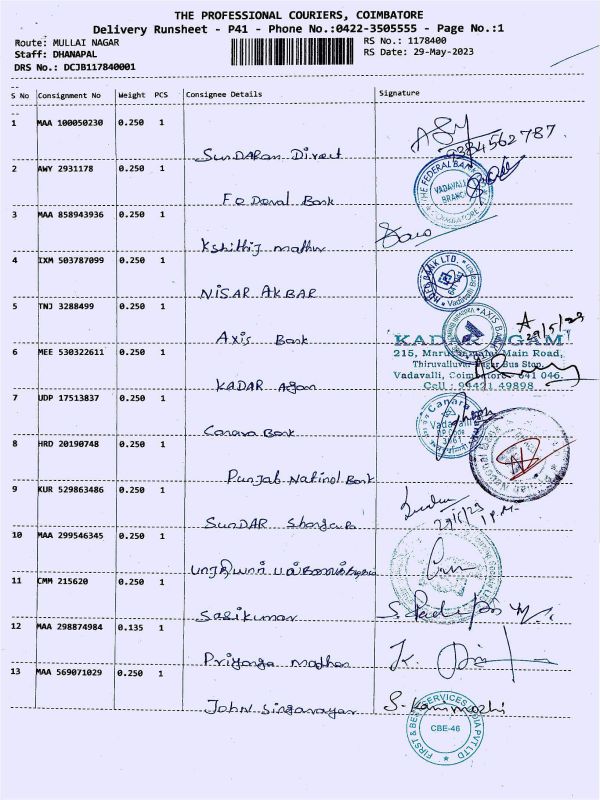 THE PROFESSIONAL COURIERS, COIMBATORE
Delivery Runsheet - P41 - Phone No.:0422-3505555 - Page No.:1
Route: MULLAI NAGAR
RS No.: 1178400
Staff: DHANAPAL
RS Date: 29-May-2023
DRS No.: DCJB117840001
S No Consignment No Weight PCS Consignee Details Signature
1 MAA 100050230 0.250 1
9384562787
SunDARam Direct
2 AWY 2931178 0.250 1
THE FEDERAL BANK
VADAVALLI
BRANCH
COIMBATORE
Federal Bank
3 MAA 858943936 0.250 1
Kshithij mathur
4 IXM 503787099 0.250 1
BANK LTD.
NISAR AKBAR
5 TNJ 3288499 0.250 1
AXIS BANK
29/5/23
Axis Bank
KADAR AGAM
6 MEE 530322611 0.250 1
215, Main Road,
Thiruvalluvar Nagar Bus Stop,
Vadavalli, Coimbatore - 641 046.
Cell : 99421 49898
KADAR Agam
7 UDP 17513837 0.250 1
Canara
Vadavalli
Canara Bank
8 HRD 20190748 0.250 1
Punjab National Bank
9 KUR 529863486 0.250 1
29/5/23
1 P.M.
SunDAR
10 MAA 299546345 0.250 1
11 CMM 215620 0.250 1
Sasikumar
12 MAA 298874984 0.135 1
Priyanga madhan
13 MAA 569071029 0.250 1
S. Kanimozhi
John
FIRST & BEST SERVICES INDIA PVT LTD
CBE-46